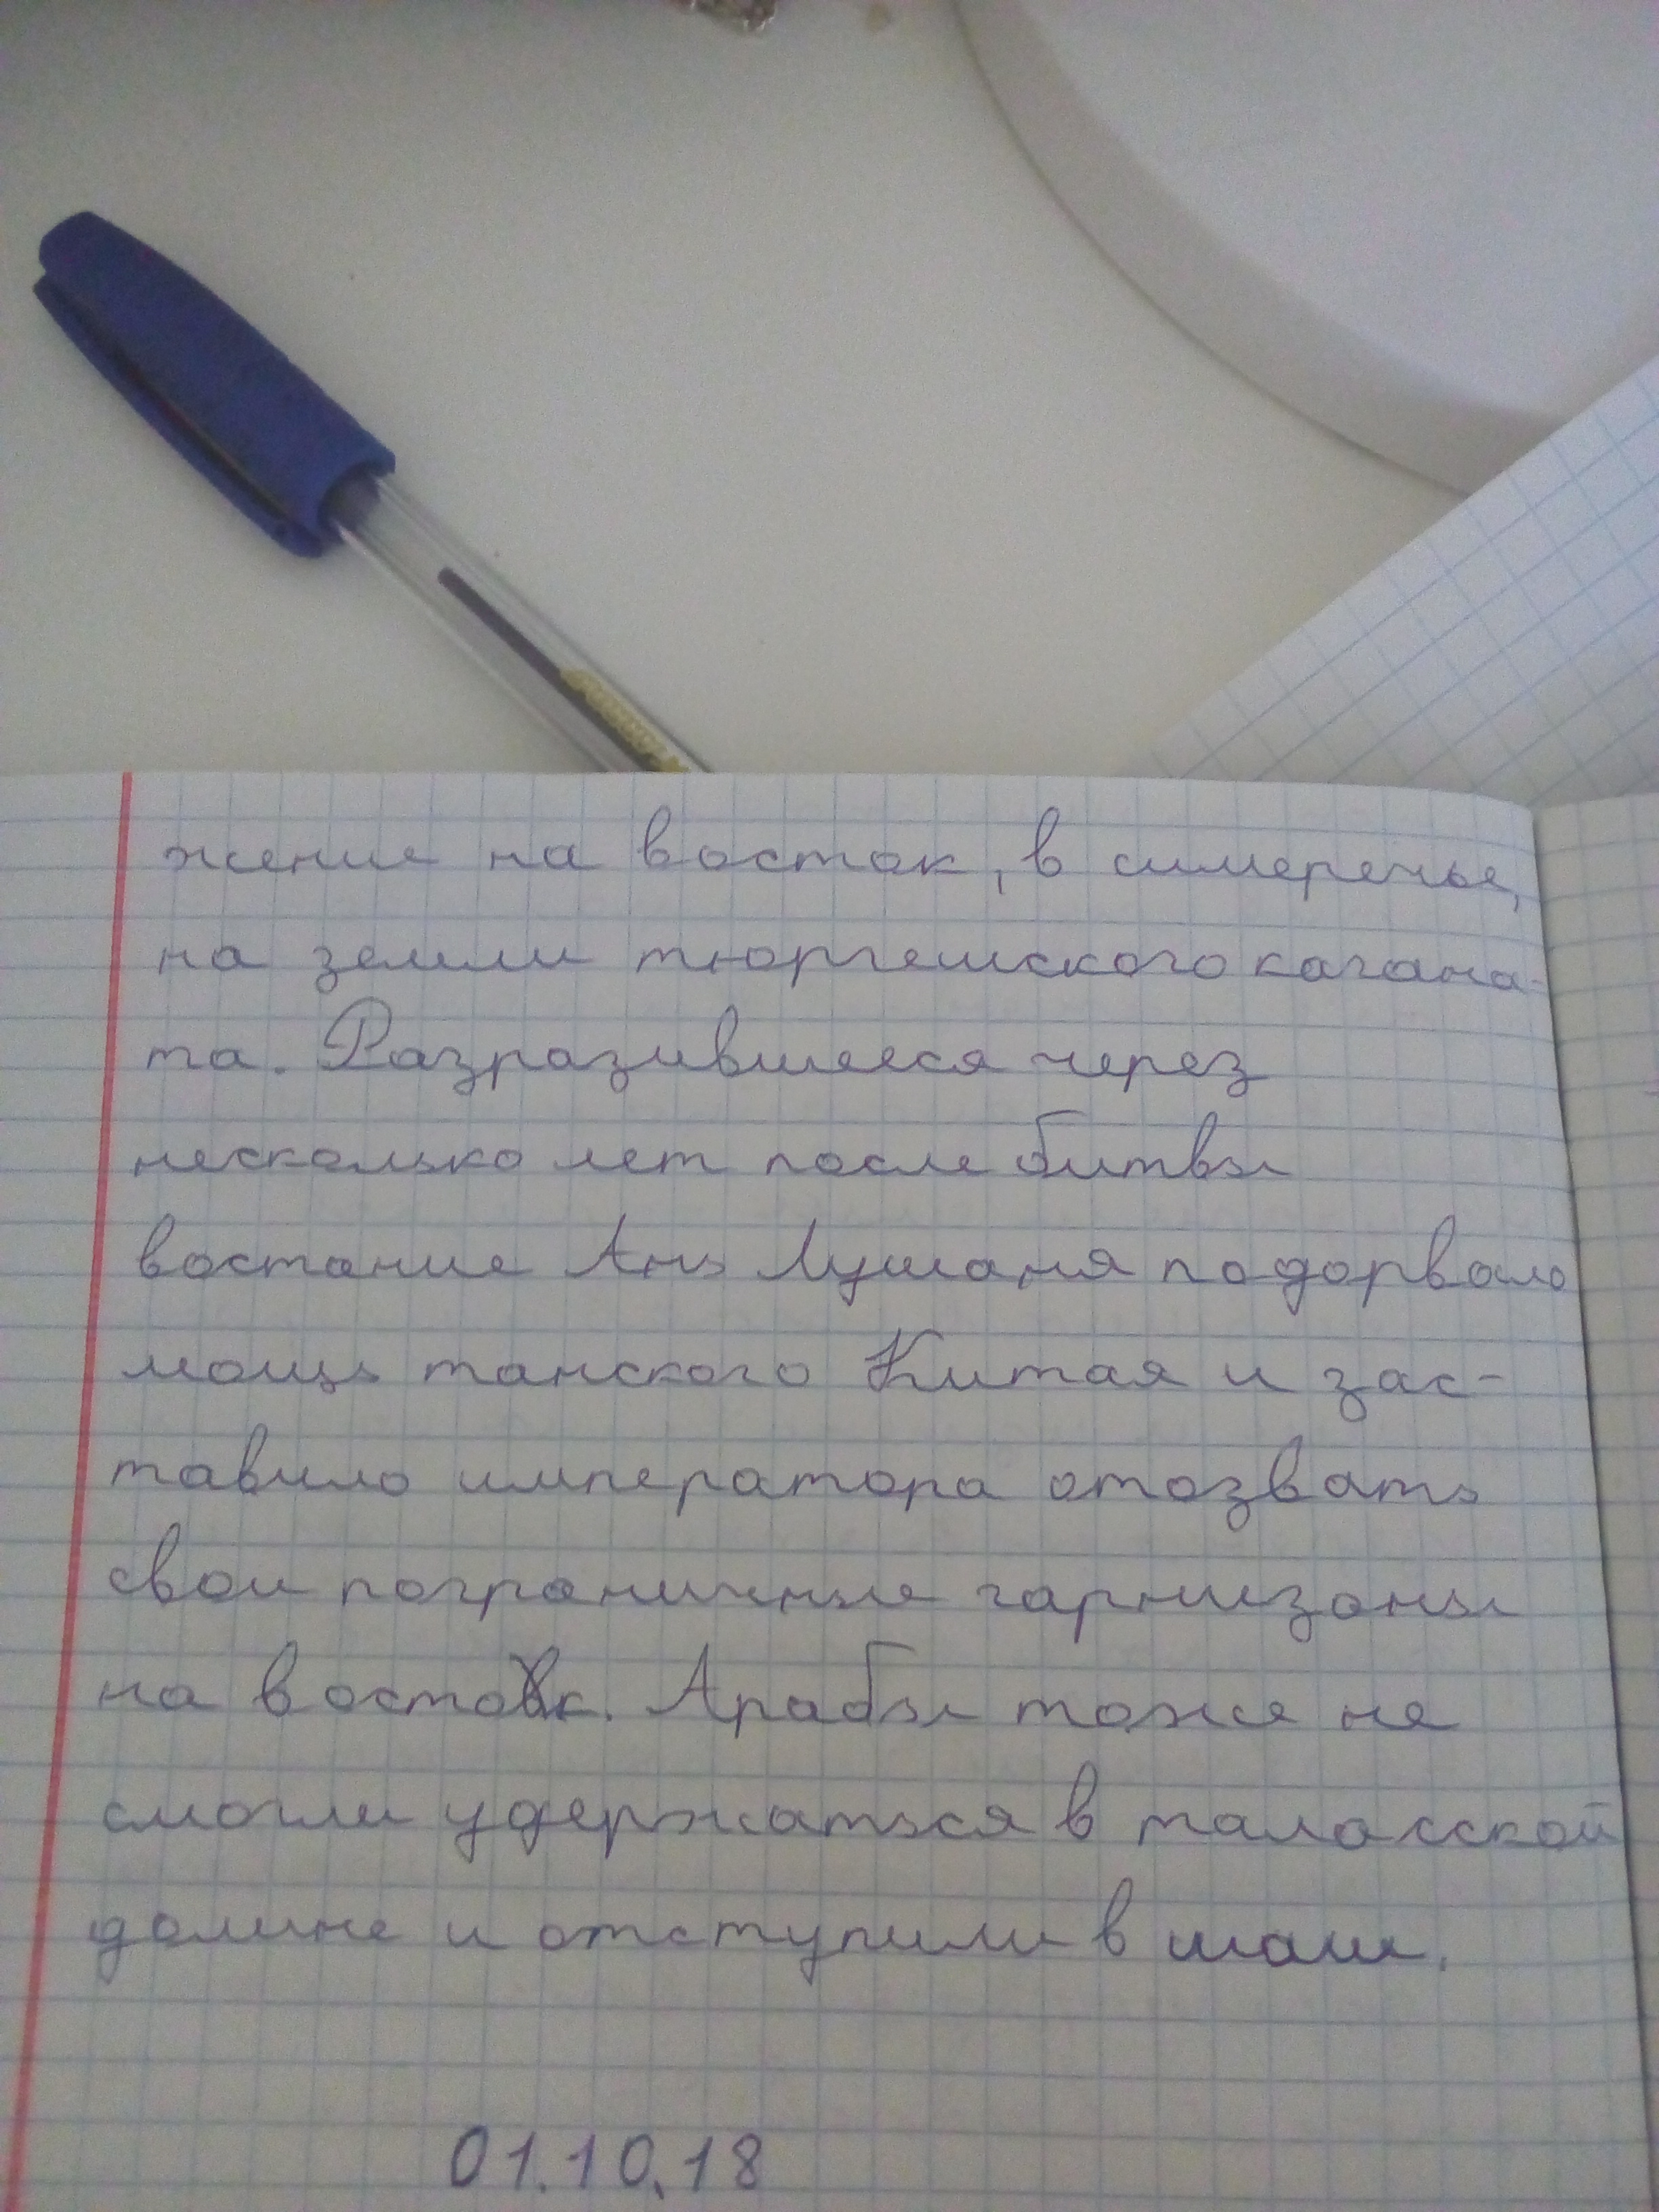 жение на восток, в симеречье,
на земли тюргешского кагана-
та. Разразившееся через
несколько лет после битвы
востание Ань Лушаня подорвало
мощь танского Китая и зас-
тавило императора отозвать
свои пограничные гарнизоны
на восток. Арабы тоже не
смогли удержаться в таласской
долине и отступили в шаш.
01.10.18